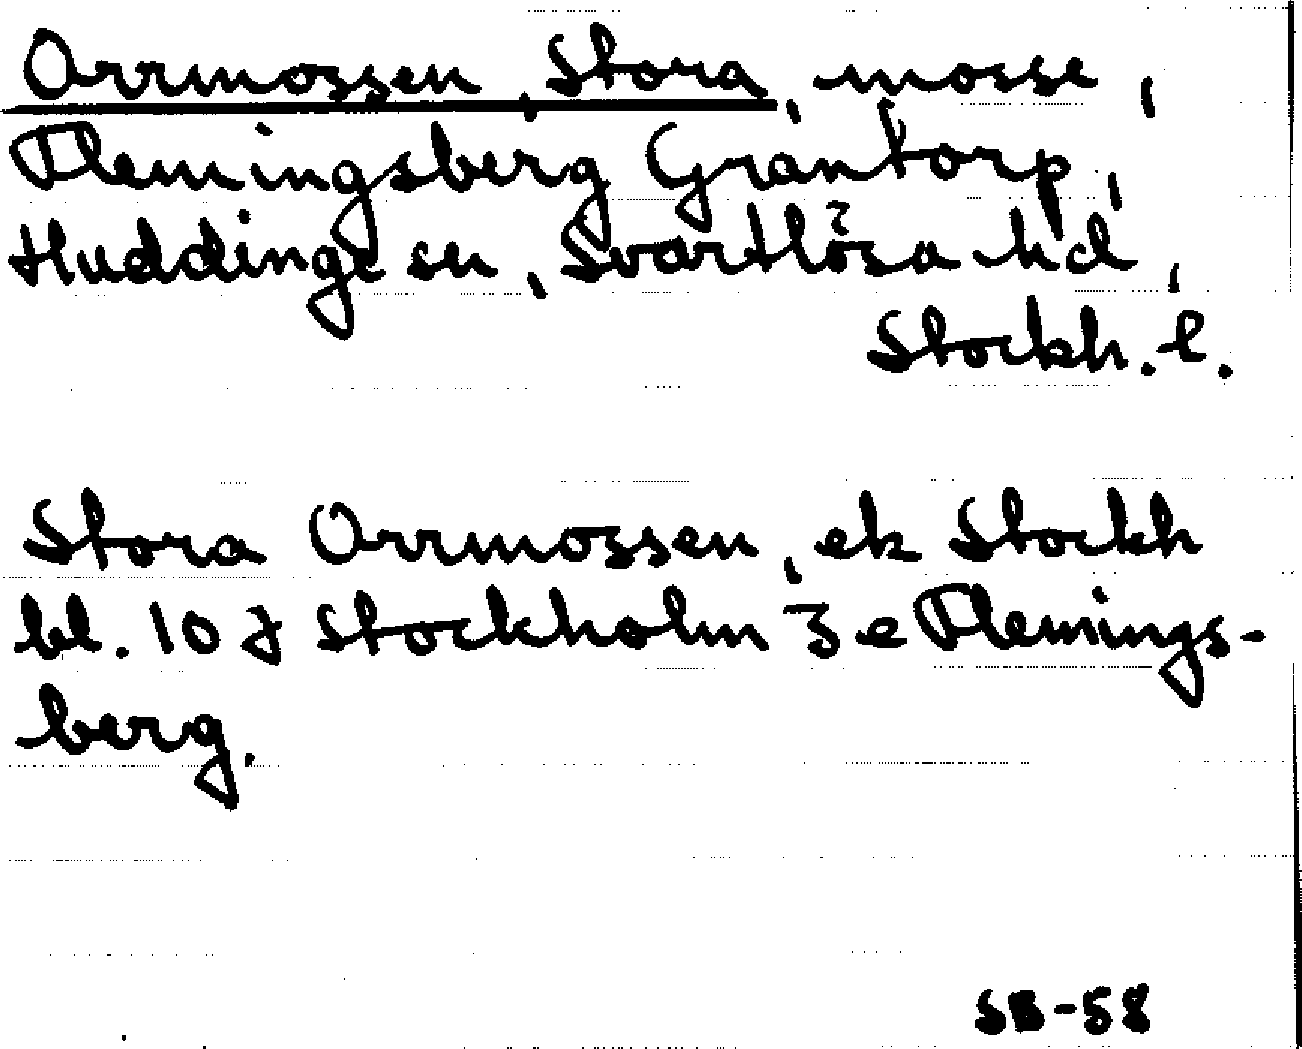 Orrmossen, Stora, mosse,
Flemingsberg Grantorp,
Huddinge sn, Svartlösa hd,
Stockh. l.
Stora Orrmossen, ek Stockh
bl. 10 J Stockholm 3 e Flemings-
berg.
SB-58